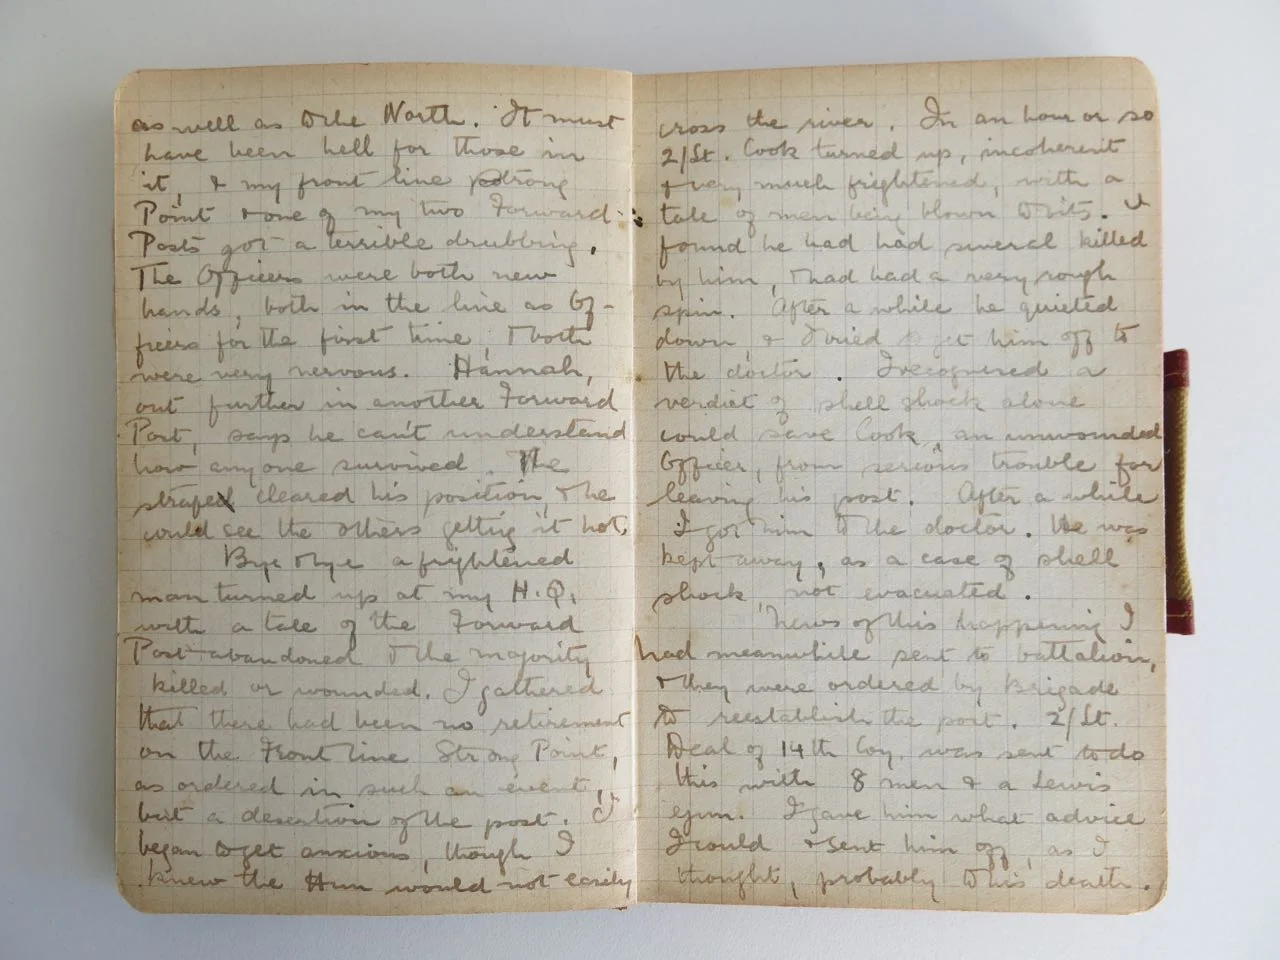 as well as to the North. It must
have been hell for those in
it, & my front line strong
Point & one of my two Forward
Posts got a terrible drubbing.
The Officers were both new
hands, both in the line as Of-
ficers for the first time, & both
were very nervous. Hannah,
out further in another Forward
Post, says he can't understand
how anyone survived. The
strafe cleared his position, & he
could see the others getting it hot.
Bye & bye a frightened
man turned up at my H.Q.
with a tale of the Forward
Post abandoned & the majority
killed or wounded. I gathered
that there had been no retirement
on the Front line Strong Point,
as ordered in such an event,
but a desertion of the post. I
began to get anxious, though I
knew the Hun would not easily
cross the river. In an hour or so
2/Lt. Cook turned up, incoherent
& very much frightened, with a
tale of men being blown to bits. I
found he had had several killed
by him, & had had a very rough
spin. After a while he quieted
down, & I tried to get him off to
the doctor. I recognised a
verdict of shell shock alone
could save Cook, an unwounded
Officer, from serious trouble for
leaving his post. After a while
I got him to the doctor. He was
kept away, as a case of shell
shock not evacuated.
News of this happening I
had meanwhile sent to battalion,
& they were ordered by Brigade
to reestablish the post. 2/Lt.
Deal of 14th Coy. was sent to do
this with 8 men & a Lewis
gun. I gave him what advice
I could & sent him off, as I
thought, probably to his death.